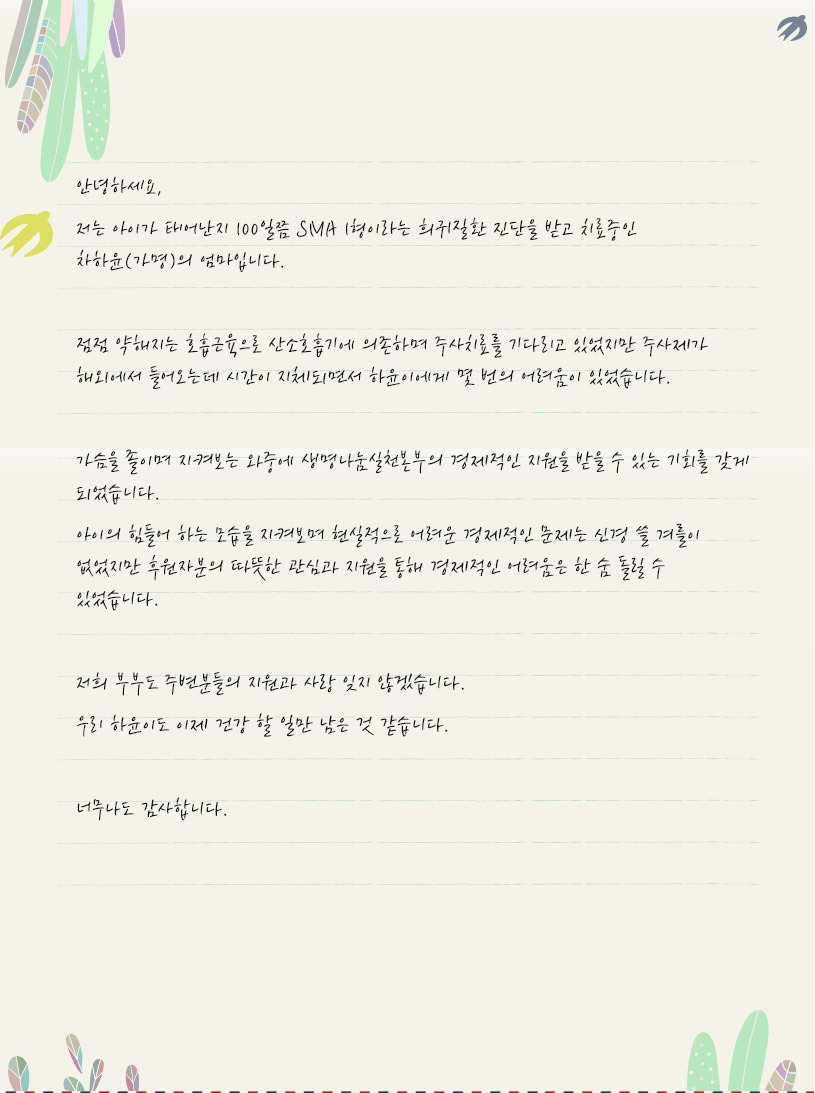 안녕하세요,
저는 아이가 태어난지 100일쯤 SMA 1형이라는 희귀질환 진단을 받고 치료중인
차하윤(가명)의 엄마입니다.
점점 약해지는 호흡근육으로 산소호흡기에 의존하며 주사치료를 기다리고 있었지만 주사제가
해외에서 들어오는데 시간이 지체되면서 하윤이에게 몇 번의 어려움이 있었습니다.
가슴을 졸이며 지켜보는 와중에 생명나눔실천본부의 경제적인 지원을 받을 수 있는 기회를 갖게
되었습니다.
아이의 힘들어 하는 모습을 지켜보며 현실적으로 어려운 경제적인 문제는 신경 쓸 겨를이
없었지만 후원자분의 따뜻한 관심과 지원을 통해 경제적인 어려움은 한 숨 돌릴 수
있었습니다.
저희 부부도 주변분들의 지원과 사랑 잊지 않겠습니다.
우리 하윤이도 이제 건강 할 일만 남은 것 같습니다.
너무나도 감사합니다.